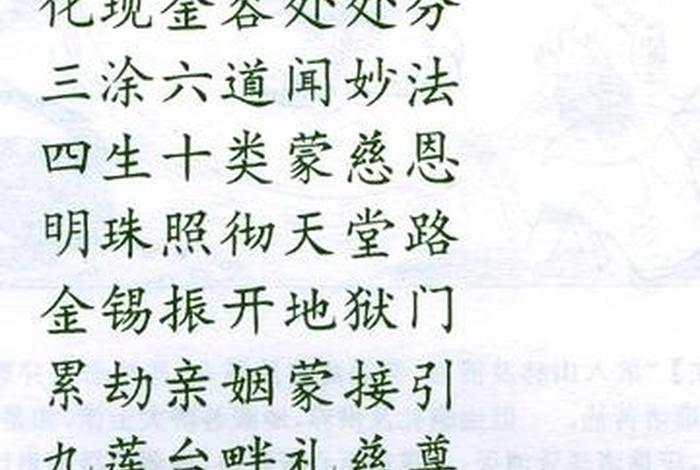 化现金容处处分
三涂六道闻妙法
四生十类蒙慈恩
明珠照彻天堂路
金锡振开地狱门
累劫亲姻蒙接引
九莲台畔礼慈尊